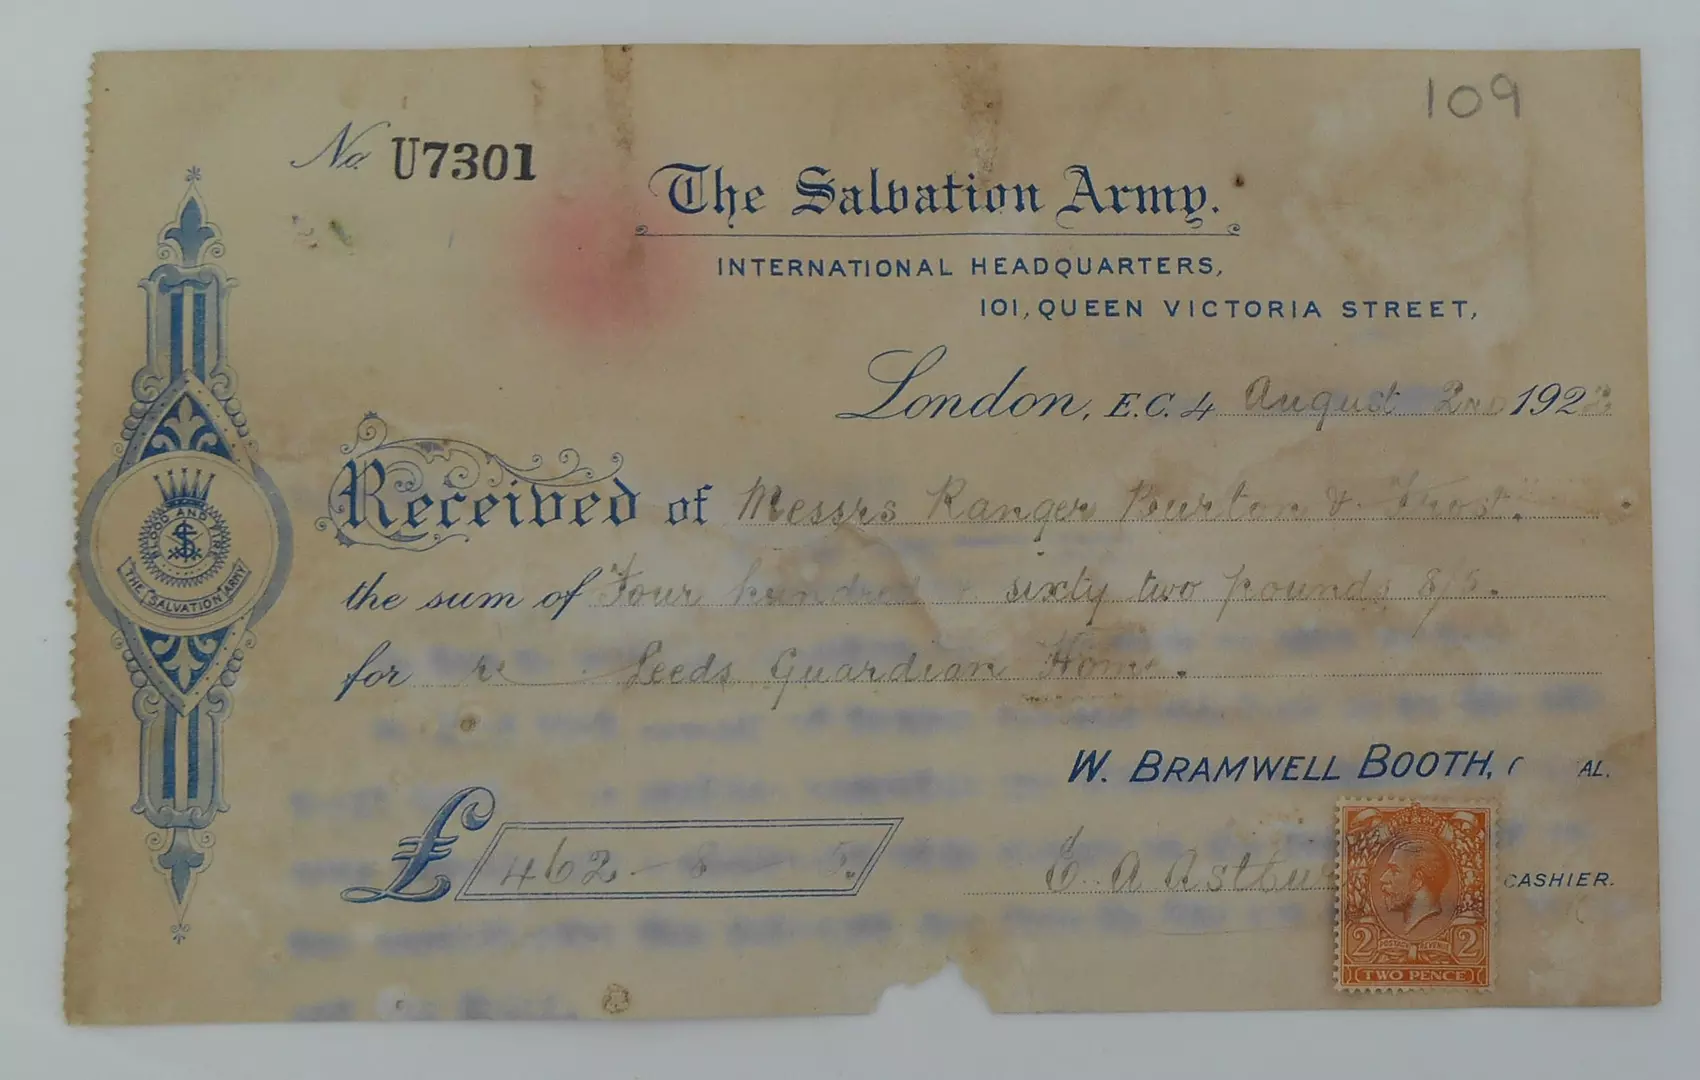 109
No. U7301
The Salvation Army.
INTERNATIONAL HEADQUARTERS,
101, QUEEN VICTORIA STREET,
London, E.C. 4 August 2ND 192
Received of Messrs Ranger Burton & Frost.
the sum of Four hundred & sixty two pounds 8/5.
for re Leeds Guardian Home.
BLOOD AND FIRE
THE SALVATION ARMY
W. BRAMWELL BOOTH, AL.
£ 462 - 8 - 5.
E. A CASHIER.
2 POSTAGE REVENUE 2
TWO PENCE